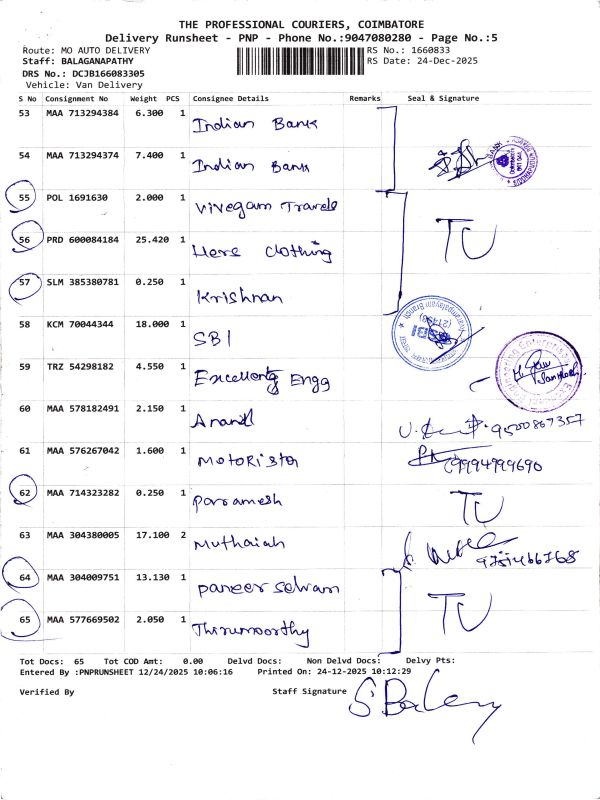 THE PROFESSIONAL COURIERS, COIMBATORE
Delivery Runsheet - PNP - Phone No.:9047080280 - Page No.:5
Route: MO AUTO DELIVERY RS No.: 1660833
Staff: BALAGANAPATHY RS Date: 24-Dec-2025
DRS No.: DCJB166083305
Vehicle: Van Delivery
S No Consignment No Weight PCS Consignee Details Remarks Seal & Signature
53 MAA 713294384 6.300 1 Indian Bank
54 MAA 713294374 7.400 1 Indian Bank
55 POL 1691630 2.000 1 Vivegam Travels
56 PRD 600084184 25.420 1 Here Clothing TU
57 SLM 385380781 0.250 1 Krishnan
58 KCM 70044344 18.000 1 SBI
59 TRZ 54298182 4.550 1 Excellent Engg
60 MAA 578182491 2.150 1 Anand 9500867357
61 MAA 576267042 1.600 1 Motoristor 9994999690
62 MAA 714323282 0.250 1 Parramesh TU
63 MAA 304380005 17.100 2 Muthaiah
64 MAA 304009751 13.130 1 Paneer selvam
65 MAA 577669502 2.050 1 Thirumoorthy TU
Tot Docs: 65 Tot COD Amt: 0.00 Delvd Docs: Non Delvd Docs: Delvy Pts:
Entered By :PNPRUNSHEET 12/24/2025 10:06:16 Printed On: 24-12-2025 10:12:29
Verified By Staff Signature